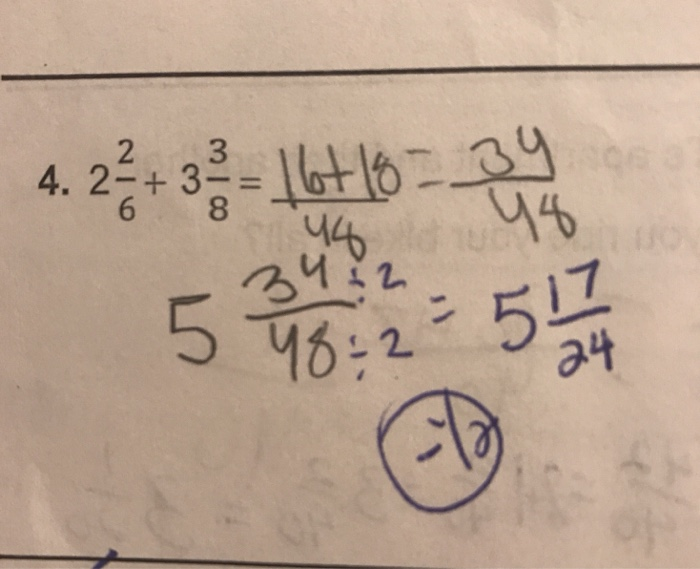 4. 2 2/6 + 3 3/8 = 16+18/48 = 34/48
5 34÷2/48÷2 = 5 17/24